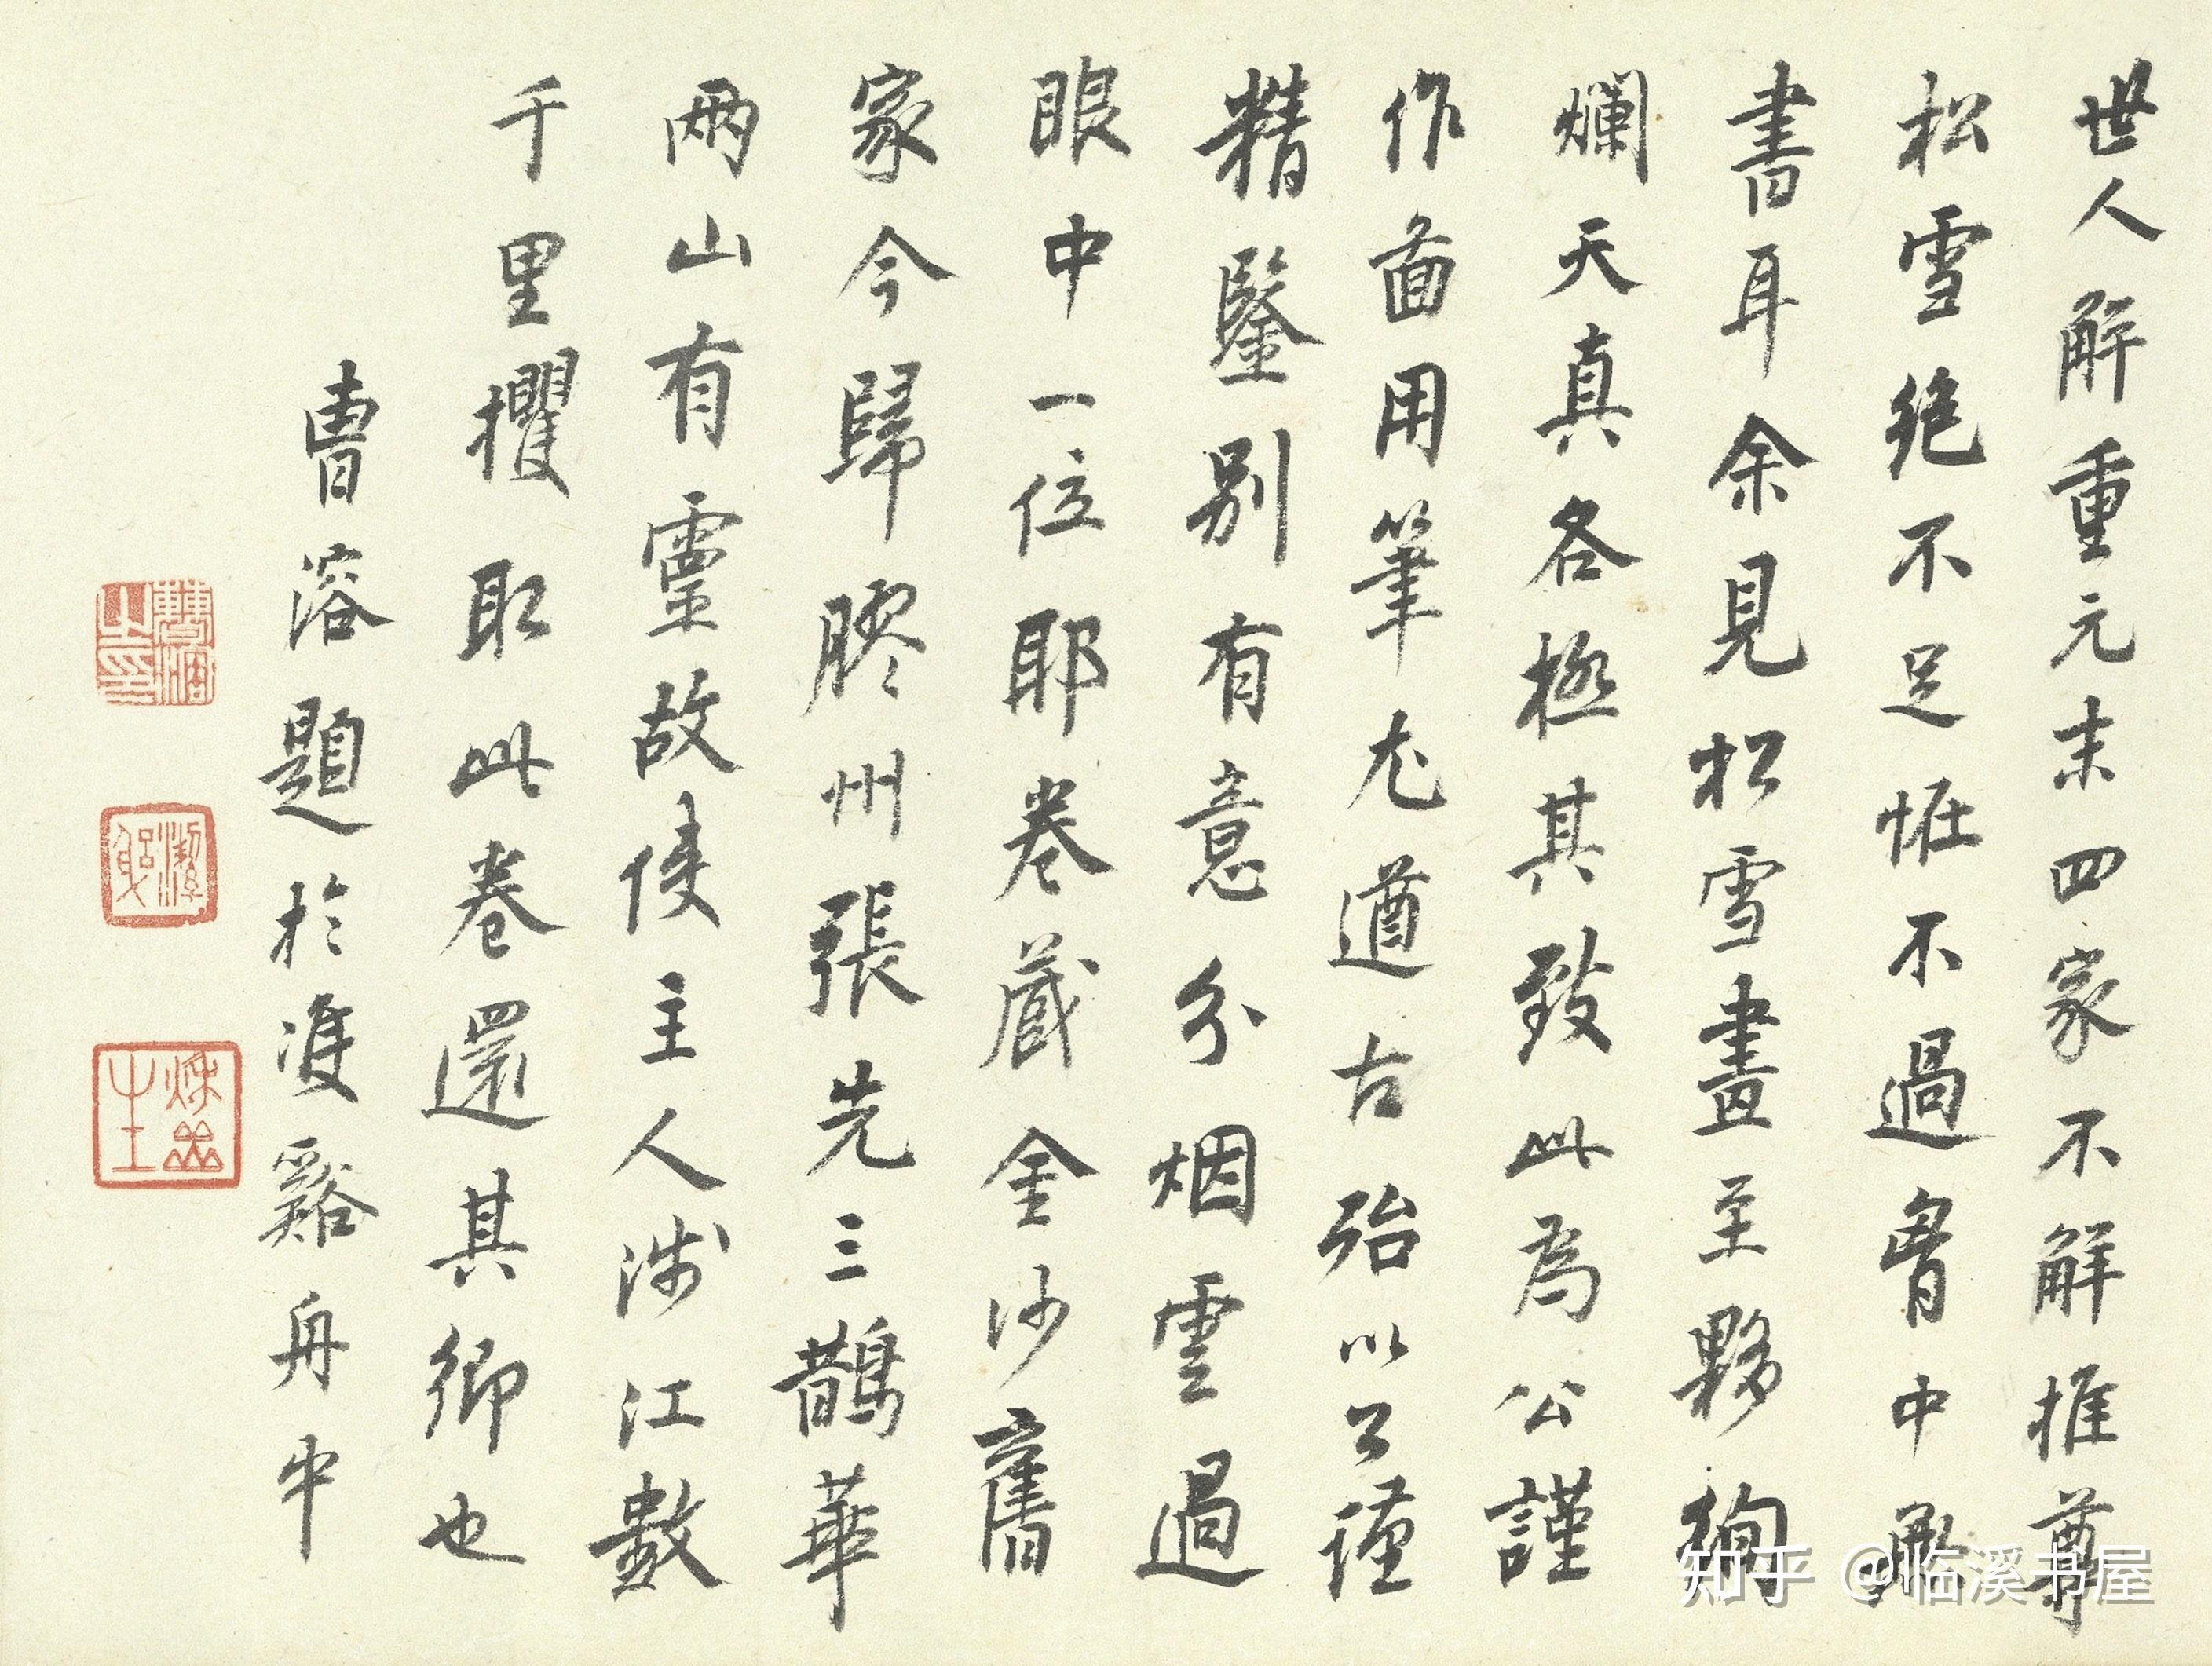 世人解重元末四家不解推尊
松雪絕不足恠不過胷中無
書耳余見松雪畫至夥絢
爛天真各極其致此為公謹
作圖用筆尤遒古殆以公謹
精鑒別有意分烟雲過
眼中一位耶卷藏金沙舊
家今歸膠州張先三鵲華
兩山有靈故使主人涉江數
千里攫取此卷還其鄉也
曹溶題於雙谿舟中
曹溶之印
潔躬
知乎 @临溪书屋